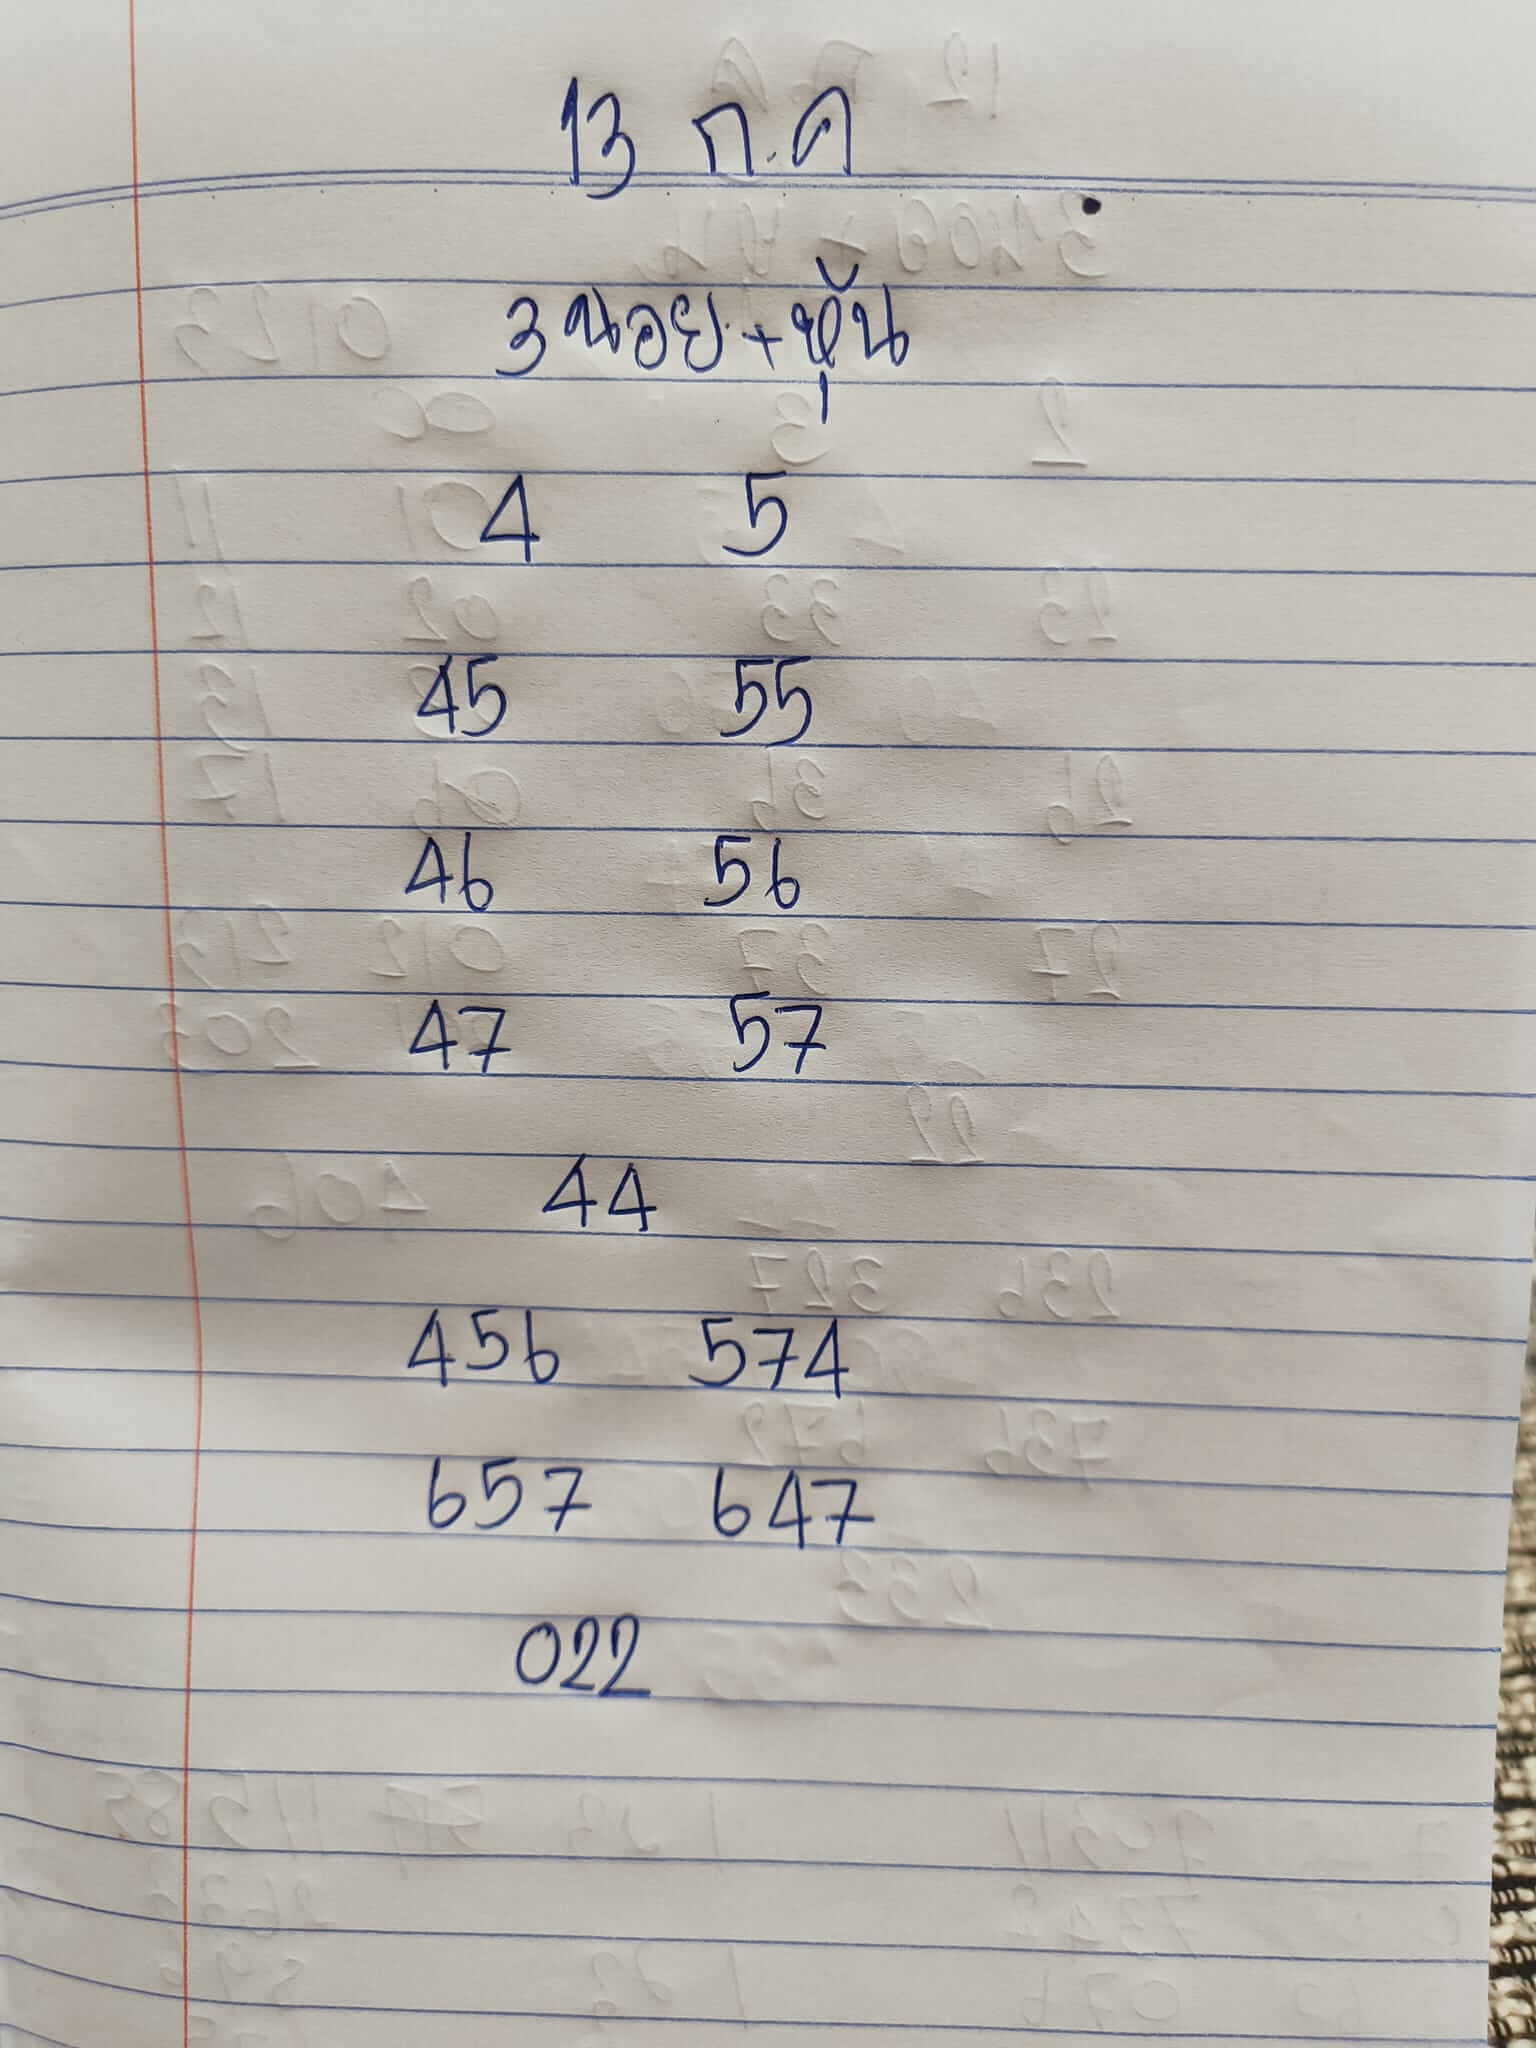 13 ก.ค
3 นอย + หุ้น
4 5
45 55
46 56
47 57
44
456 574
657 647
022